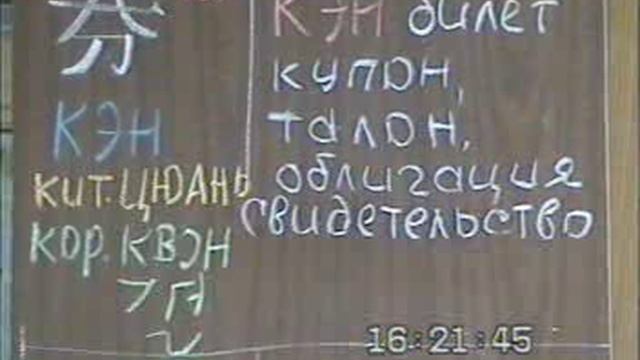 券
КЭН
КИТ. ЦЮАНЬ
КОР. КВЭН
КЭН билет
купон,
талон,
облигация
свидетельство
16:21:45